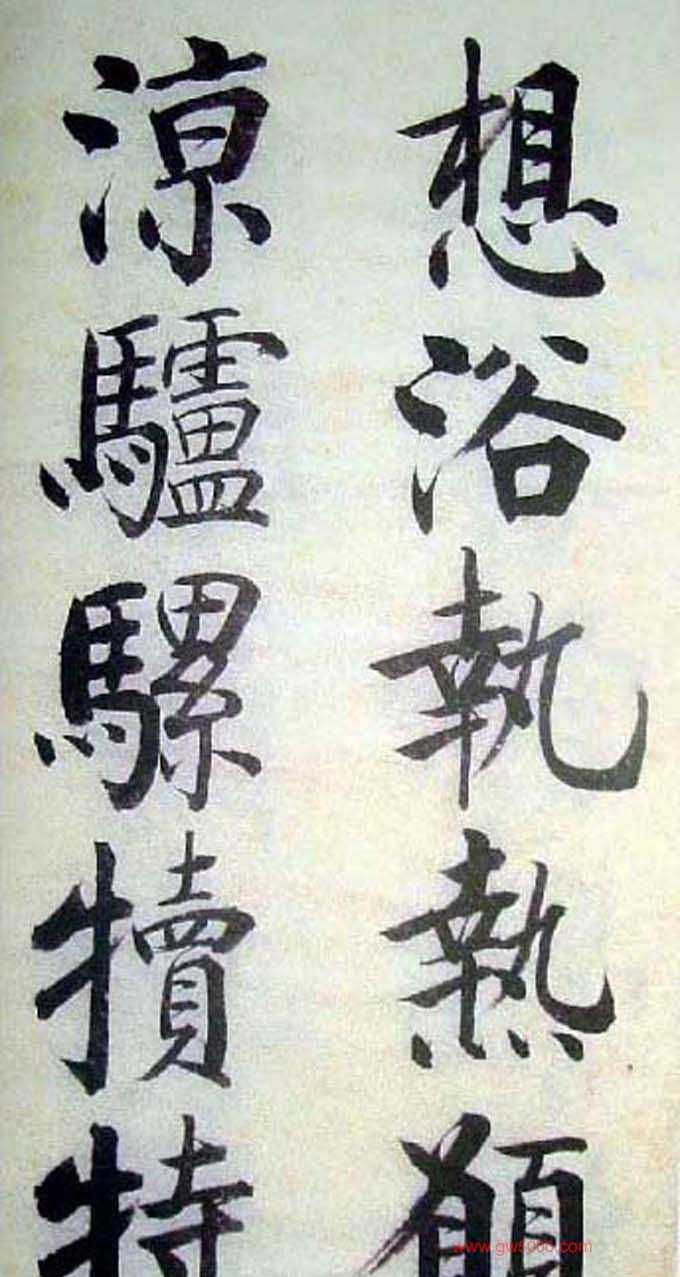 想浴執熱願
涼驢騾犢特
www.gw5000.com